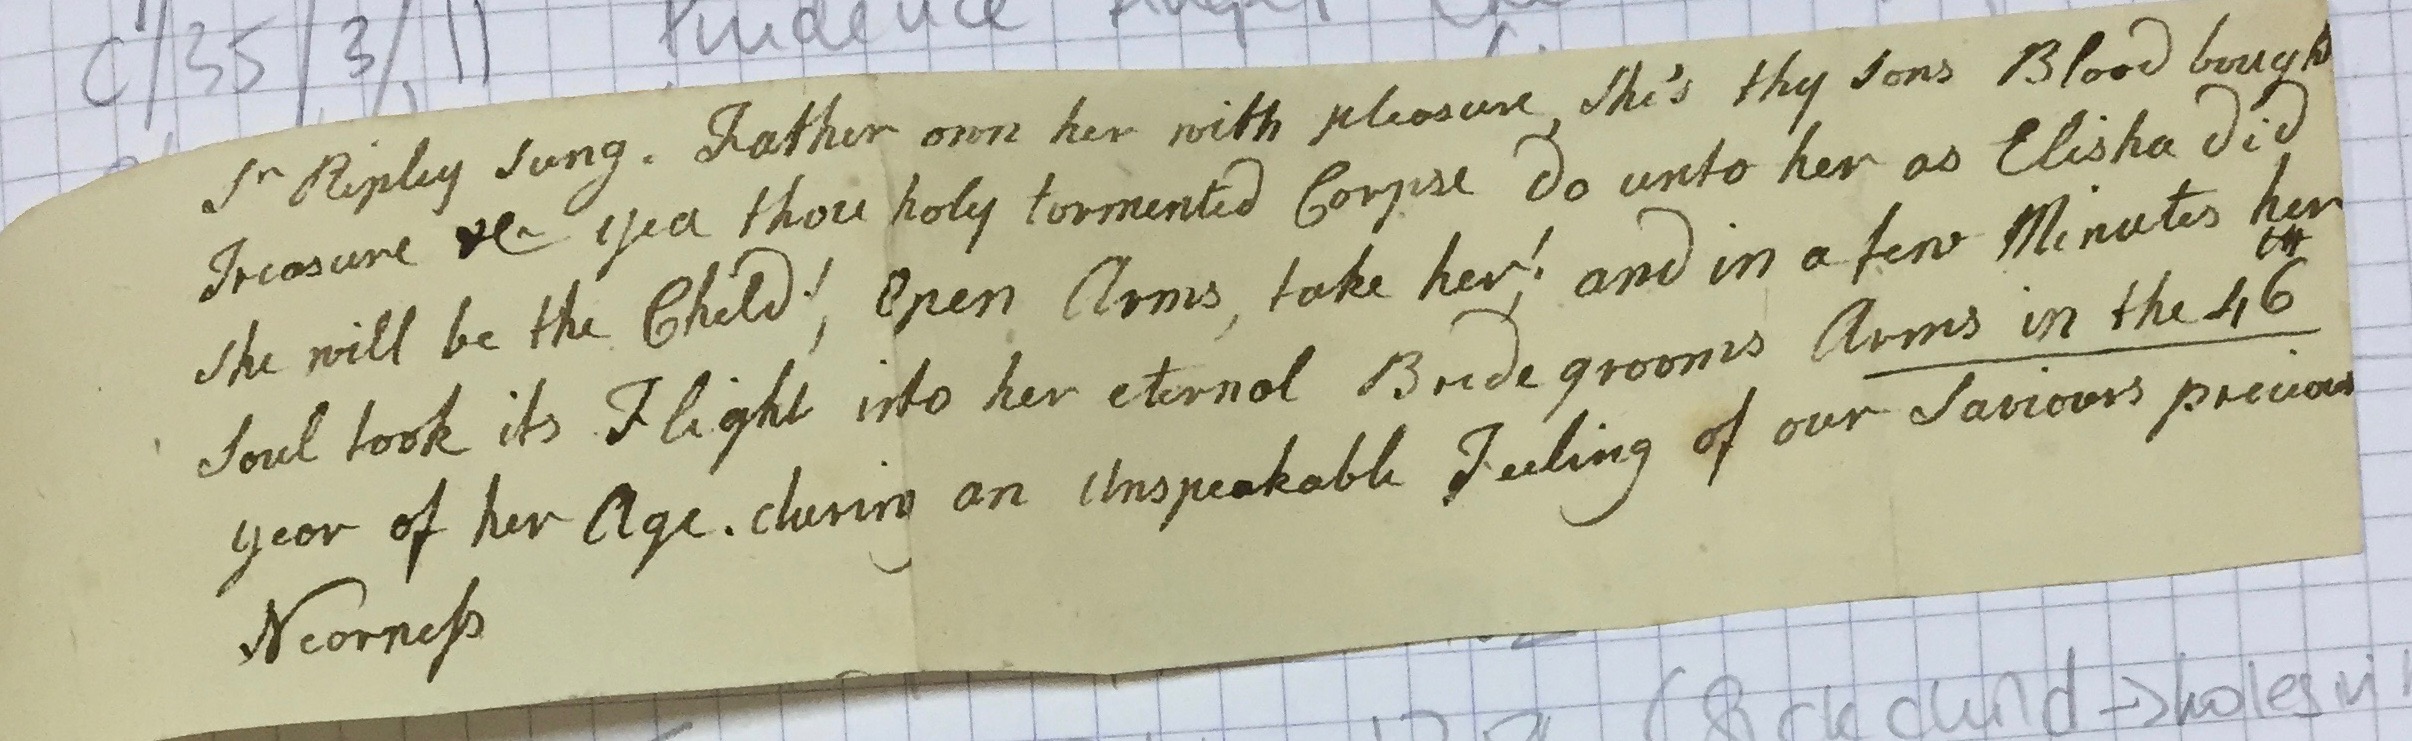 C/35/3/11
Prudence
Sr Ripley sung. Father own her with pleasure, she's thy sons Blood bought
Treasure &c yea thou holy tormented Corpse do unto her as Elisha did
she will be the Child!, Open Arms, take her! and in a few Minutes her
Soul took its Flight into her eternal Bridegrooms Arms in the 46
th
year of her Age. during an Unspeakable Feeling of our Saviours precious
Nearness
(Sick child → holes in